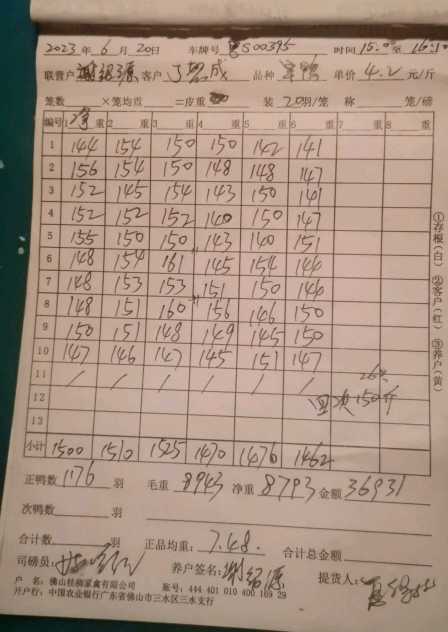 2023年6月20日 车牌号 S00395 时间15:0至16:10
联营户 谢绍源 客户 丁盟成 品种 单价4.2元/斤
笼数 ×笼均 =皮重 装20羽/笼 称 笼/磅
编号 1净重 2重 3重 4重 5重 6重 7重 8重
1 144 154 150 150 142 141
2 156 154 150 148 148 147
3 152 145 154 143 150 141
4 152 152 152 140 150 147
5 155 150 150 143 140 151
6 148 154 161 145 154 146
7 148 153 153 151 150 146
8 148 151 160 156 146 150
9 150 151 148 149 145 150
10 147 146 147 145 151 147
11 / / / / / /
12 回次150斤
13
小计 1500 1510 1525 1470 1476 1462
正鸭数 1176 羽 毛重 8943 净重 8793 金额 36931
次鸭数 羽
合计数 羽 正品均重: 7.48. 合计总金额
司磅员: 养户签名: 谢绍源 提货人:
户 名: 佛山桂柳家禽有限公司 账号: 444 401 010 400 169 29
开户行: 中国农业银行广东省佛山市三水区三水支行
①存根(白) ②客户(红) ③养户(黄)